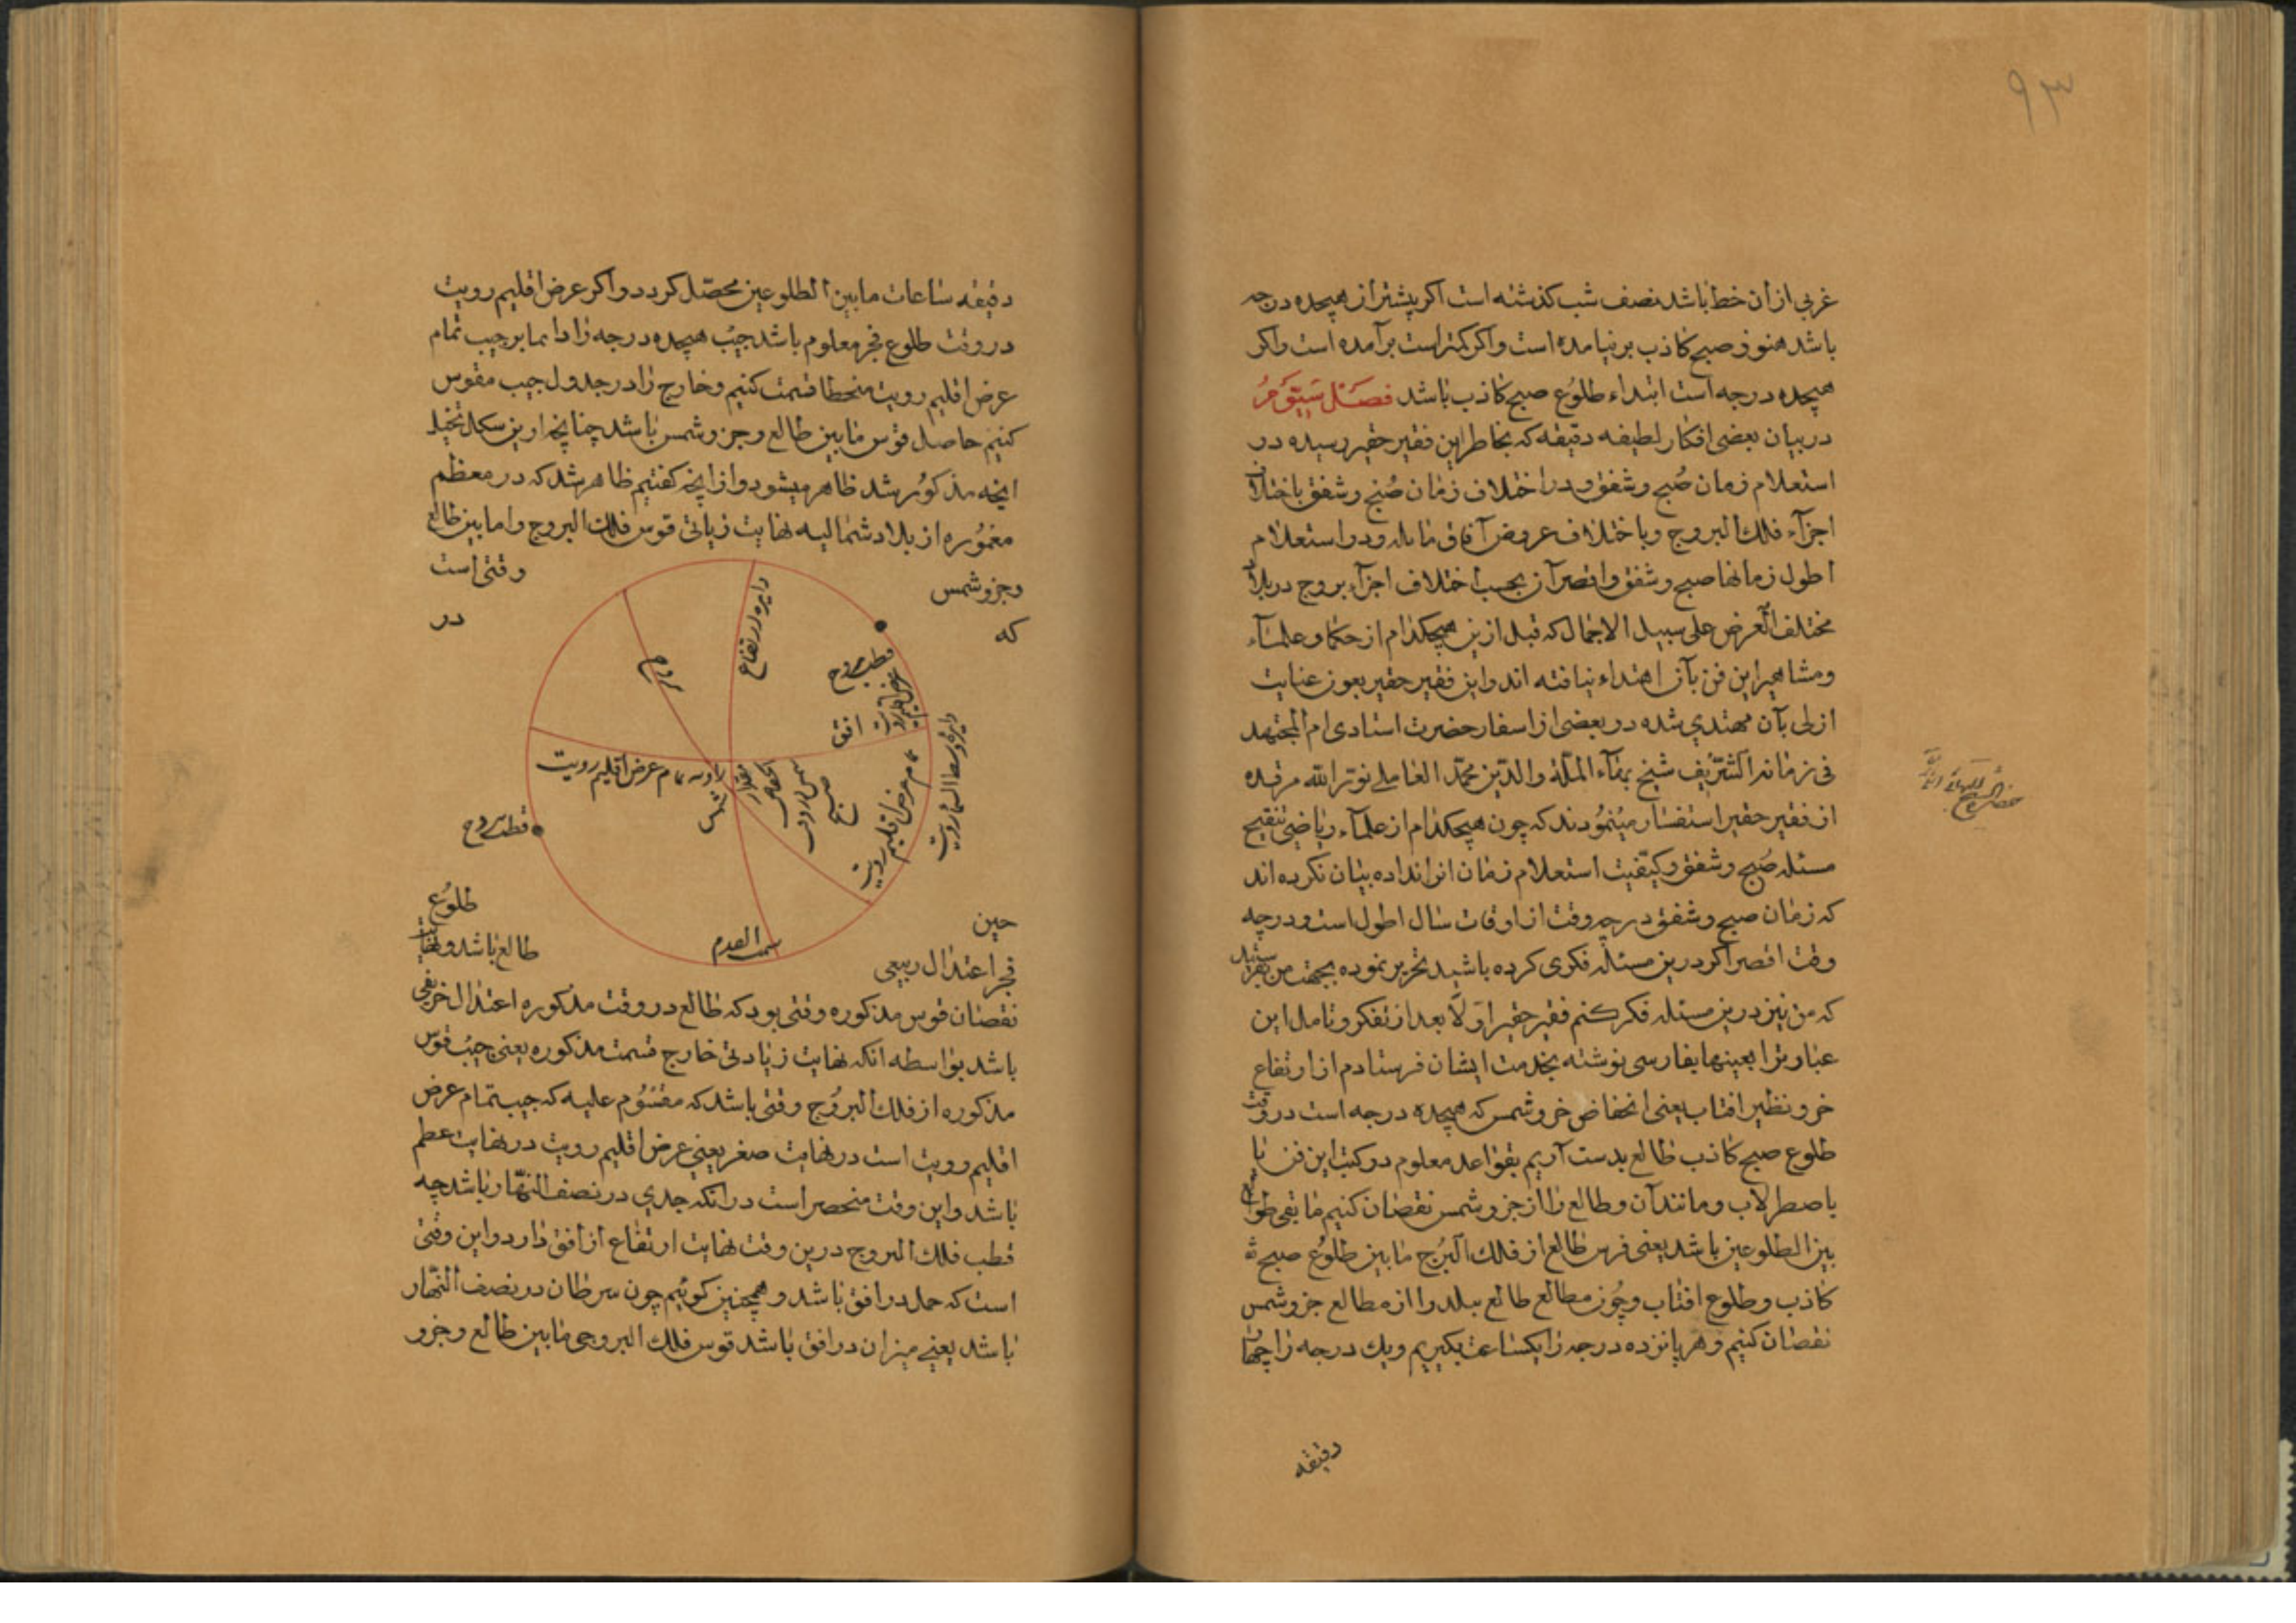 ۹۳
غربی ازان خط باشد نصف شب کذشته است اکر پیشتر از هیجده درجه
باشد هنوز صبح کاذب برنیامده است واکر کمتر است برآمده است واکر
هیجده درجه است ابتداء طلوع صبح کاذب باشد فصل سیّوم
در بیان بعضی افکار لطیفه دقیقه که بخاطر این فقیر حقیر رسیده در
استعلام زمان صُبح وشفق ودر اختلاف زمان صُبح وشفق باختلاف
اجزآء فلك البروج وباختلاف عروض آفاق مایله ودر استعلام
اطول زمانها صبح وشفق واقصر آن بحسب اختلاف اجزآء بروج در بلاد
مختلف العرض علی سبیل الاجمال که قبل ازین هیچکدام از حکما وعلمآء
ومشاهیر این فن بآن اهتداء نیافته اند واین فقیر حقیر بعون عنایت
ازلی بآن مهتدی شده در بعضی از اسفار حضرت استادی ام المجتهد
فی زمانه الشریف شیخ بهآء الملّة والدّین محمّد العاملے نوّر الله مرقده
از فقیر حقیر استفسار مینمودند که چون هیچکدام از علمآء ریاضی تنقیح
مسئله صُبح وشفق وکیفیت استعلام زمان انرا نداده بیان نکرده اند
که زمان صبح وشفق در چه وقت از اوقات سال اطول است ودرچه
وقت اقصر اکر درین مسئله فکری کرده باشید تحریر نموده بجهت من بفرستید
که من نیز درین مسئله فکر کنم فقیر حقیر اوّلاً بعد از تفکر وتامل این
عبارت را بعینها بفارسی نوشته بخدمت ایشان فرستادم از ارتفاع
جزو نظیر افتاب یعنی انخفاض جزو شمس که هیجده درجه است در وقت
طلوع صبح کاذب طالع بدست آریم بقواعد معلوم در کتب این فن یا
باصطرلاب ومانند آن وطالع را از جزو شمس نقصان کنیم ما بقی
بین الطلوعین باشد یعنی قوس طالع از فلك البُرج ما بین طلوُع صبح
کاذب وطلوع افتاب وچُون مطالع طالع ببلد را از مطالع جزو شمس
نقصان کنیم وهر پانزده درجه را یکساعت بکیریم ویك درجه را چهار
دقیقه
دقیقه ساعات مابین الطلوعین محصّل کردد واکر عرض اقلیم رویت
در وقت طلوع فجر معلوم باشد جیُب هیجده درجه را دایما بر جیب تمام
عرض اقلیم رویت منحطا قسمت کنیم وخارج را در جدول جیب مقوس
کنیم حاصل قوس ما بین طالع وجزو شمس باشد چنانچه ازین شکل تخیل
انچه مذکوُر شد ظاهر میشود واز انچه کفتیم ظاهر شد که در معظم
معموُره از بلاد شمالیه نهایت زیاتی قوس فلك البروج واما بین طالع
وجزو شمس وقتی است
که در
دایره ارتفاع
قطب بروج
افق
دایرهٔ وسط السماء رویت
تمام عرض اقلیم رویت
زاویه تمام عرض اقلیم رویت
شمس
قطب بروج
سمت القدم
حین طلوُع
فجر اعتدال ربیعی طالع باشد ونهایت
نقصان قوس مذکوره وقتی بود که طالع در وقت مذکوره اعتدال خریفی
باشد بواسطه انکه نهایت زیادتی خارج قسمت مذکوره یعنی جیُب قوس
مذکوره از فلك البروُج وقتی باشد که مقسُوم علیه که جیب تمام عرض
اقلیم رویت است در نهایت صغر یعنی عرض اقلیم رویت در نهایت عظم
باشد واین وقت منحصر است در انکه جدی در نصف النهّار باشد چه
قطب فلك البروج درین وقت نهایت ارتفاع از افق دارد واین وقتی
است که حمل در افق باشد وهمچنین کوئیم چون سرطان در نصف النهّار
باشد یعنے میزان در افق باشد قوس فلك البروجی ما بین طالع وجزو